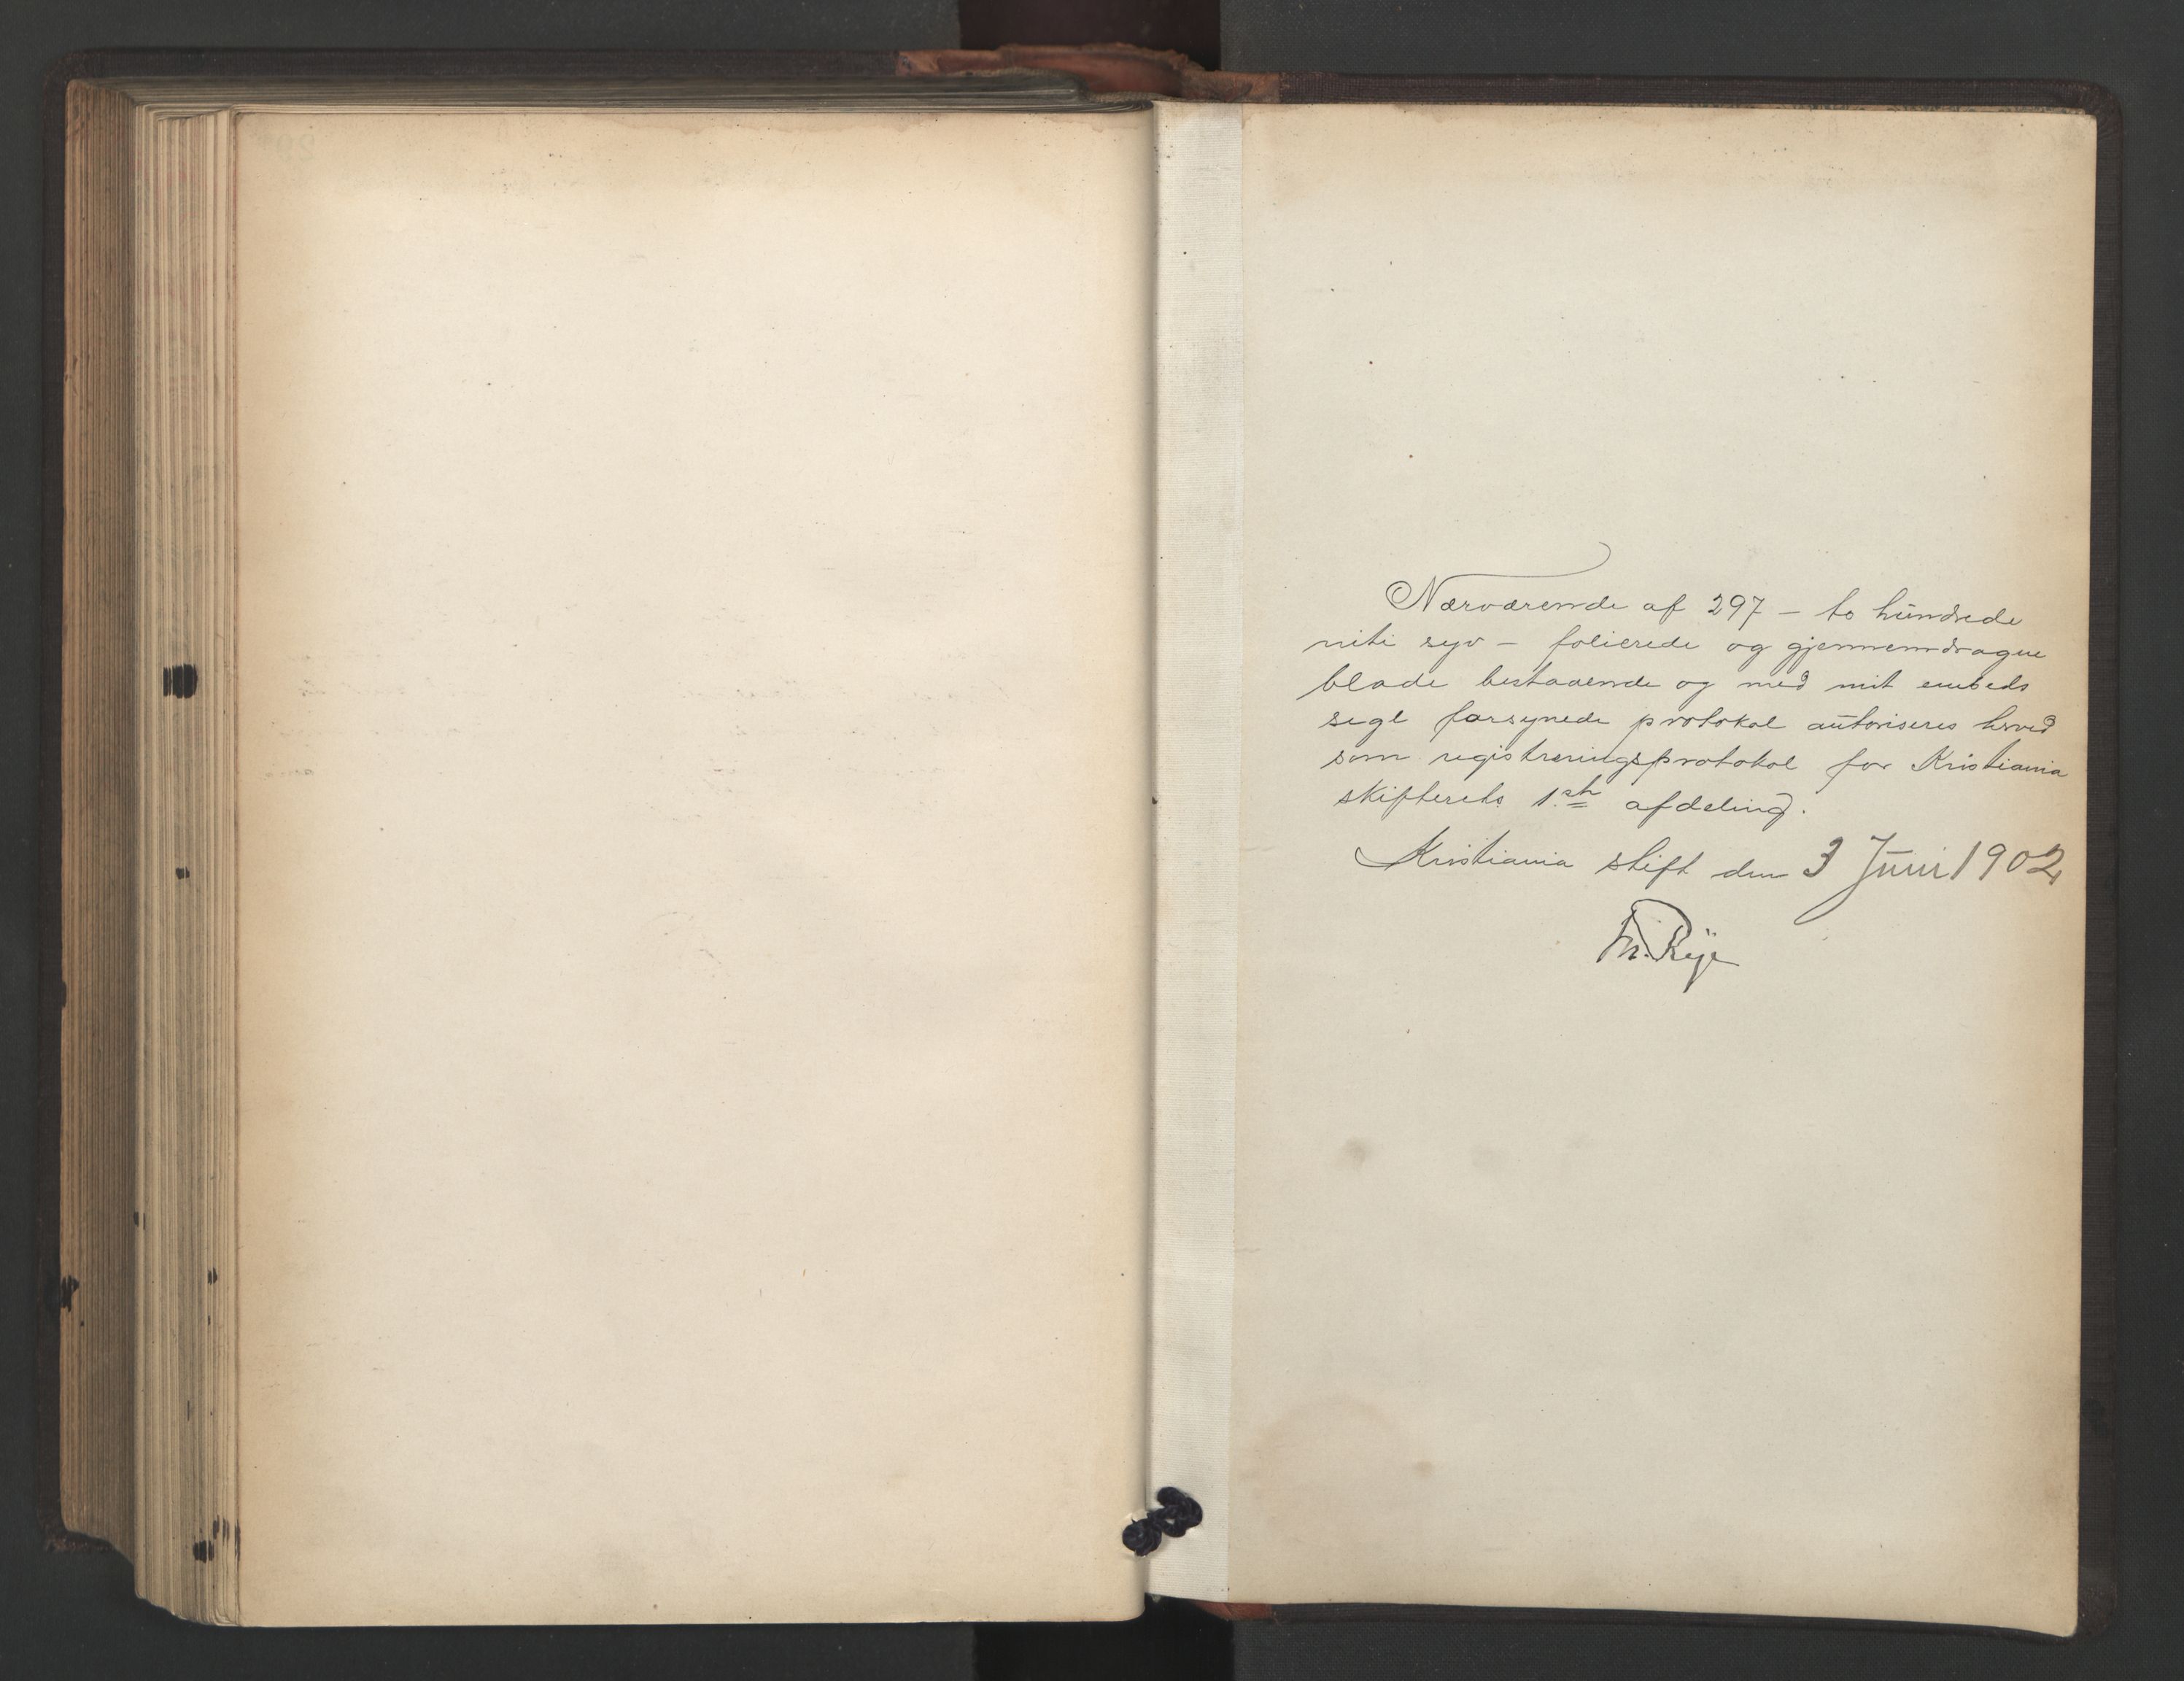 Nærværende af 297 – to hundrede
niti syv – folierede og gjennemdragne
blade bestaaende og med mit embeds
segl forsynede protokol autoriseres herved
som registreringsprotokol for Kristiania
skifterets 1.ste afdeling.
Kristiania stift den 3 Juni 1902
Rye